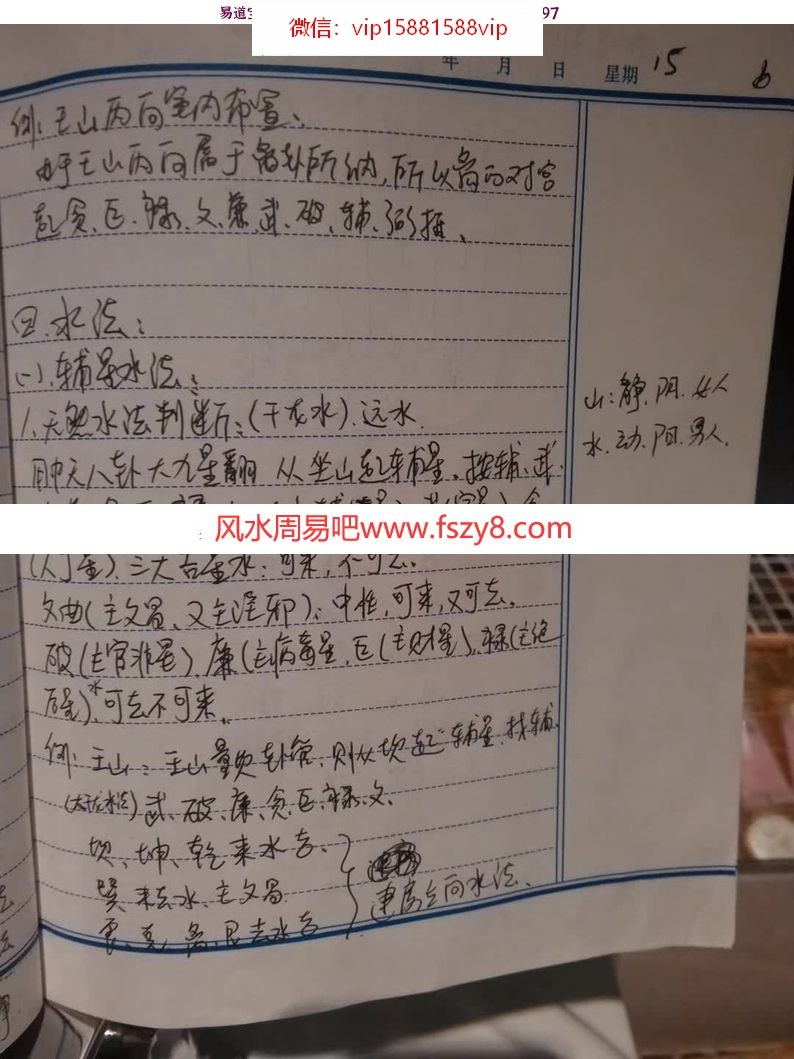 易道
97
微信：vip15881588vip
年 月 日 星期 15
6
例：壬山丙向室内布置、
由于壬山丙向属于离卦所纳,所以离的对宫
起贪、巨、禄、文、廉、武、破、辅、弼推、
四、水法：
(一)、辅星水法：
1、天然水法判断：(干龙水)、远水
用中天八卦大九星翻 从坐山起辅星。按辅、武、
山：静、阴、女人
水、动、阳、男人、
风水周易吧www.fszy8.com
(人丁星)、三大吉星水：可来，不可去。
文曲(主文昌、又主淫邪)：中性,可来,又可去。
破(主官非星)、廉(主病毒星、巨(主财星)、禄(主绝
后星)水、可去不可来、
例：壬山：壬山属坎卦管、则从坎起辅星、找辅、
武、破、廉、贪、巨、禄、文、
坎、坤、乾来水吉、
巽来去水、主文昌
震、兑、离、艮去水吉
建房立向水法、